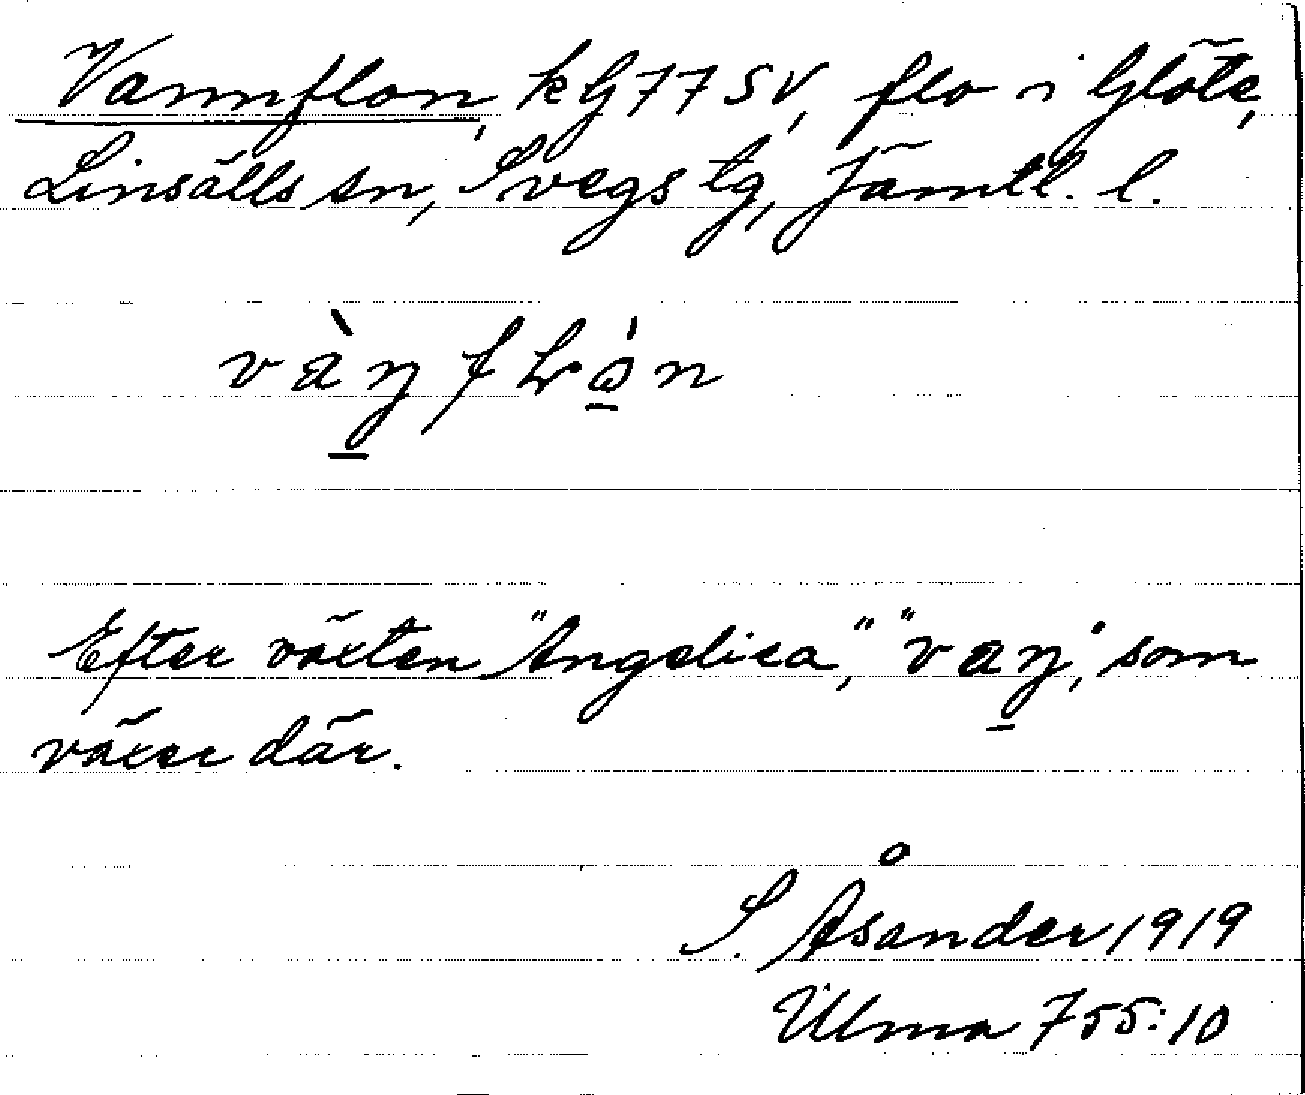 Vannflon, k G 77 SV, flo i Glöte,
Linsälls sn, Svegs tg, Jämtl. l.
Efter växten "Angelica," "vaŋ," som
växer där.
S. Åsander 1919
Ulma 755:10